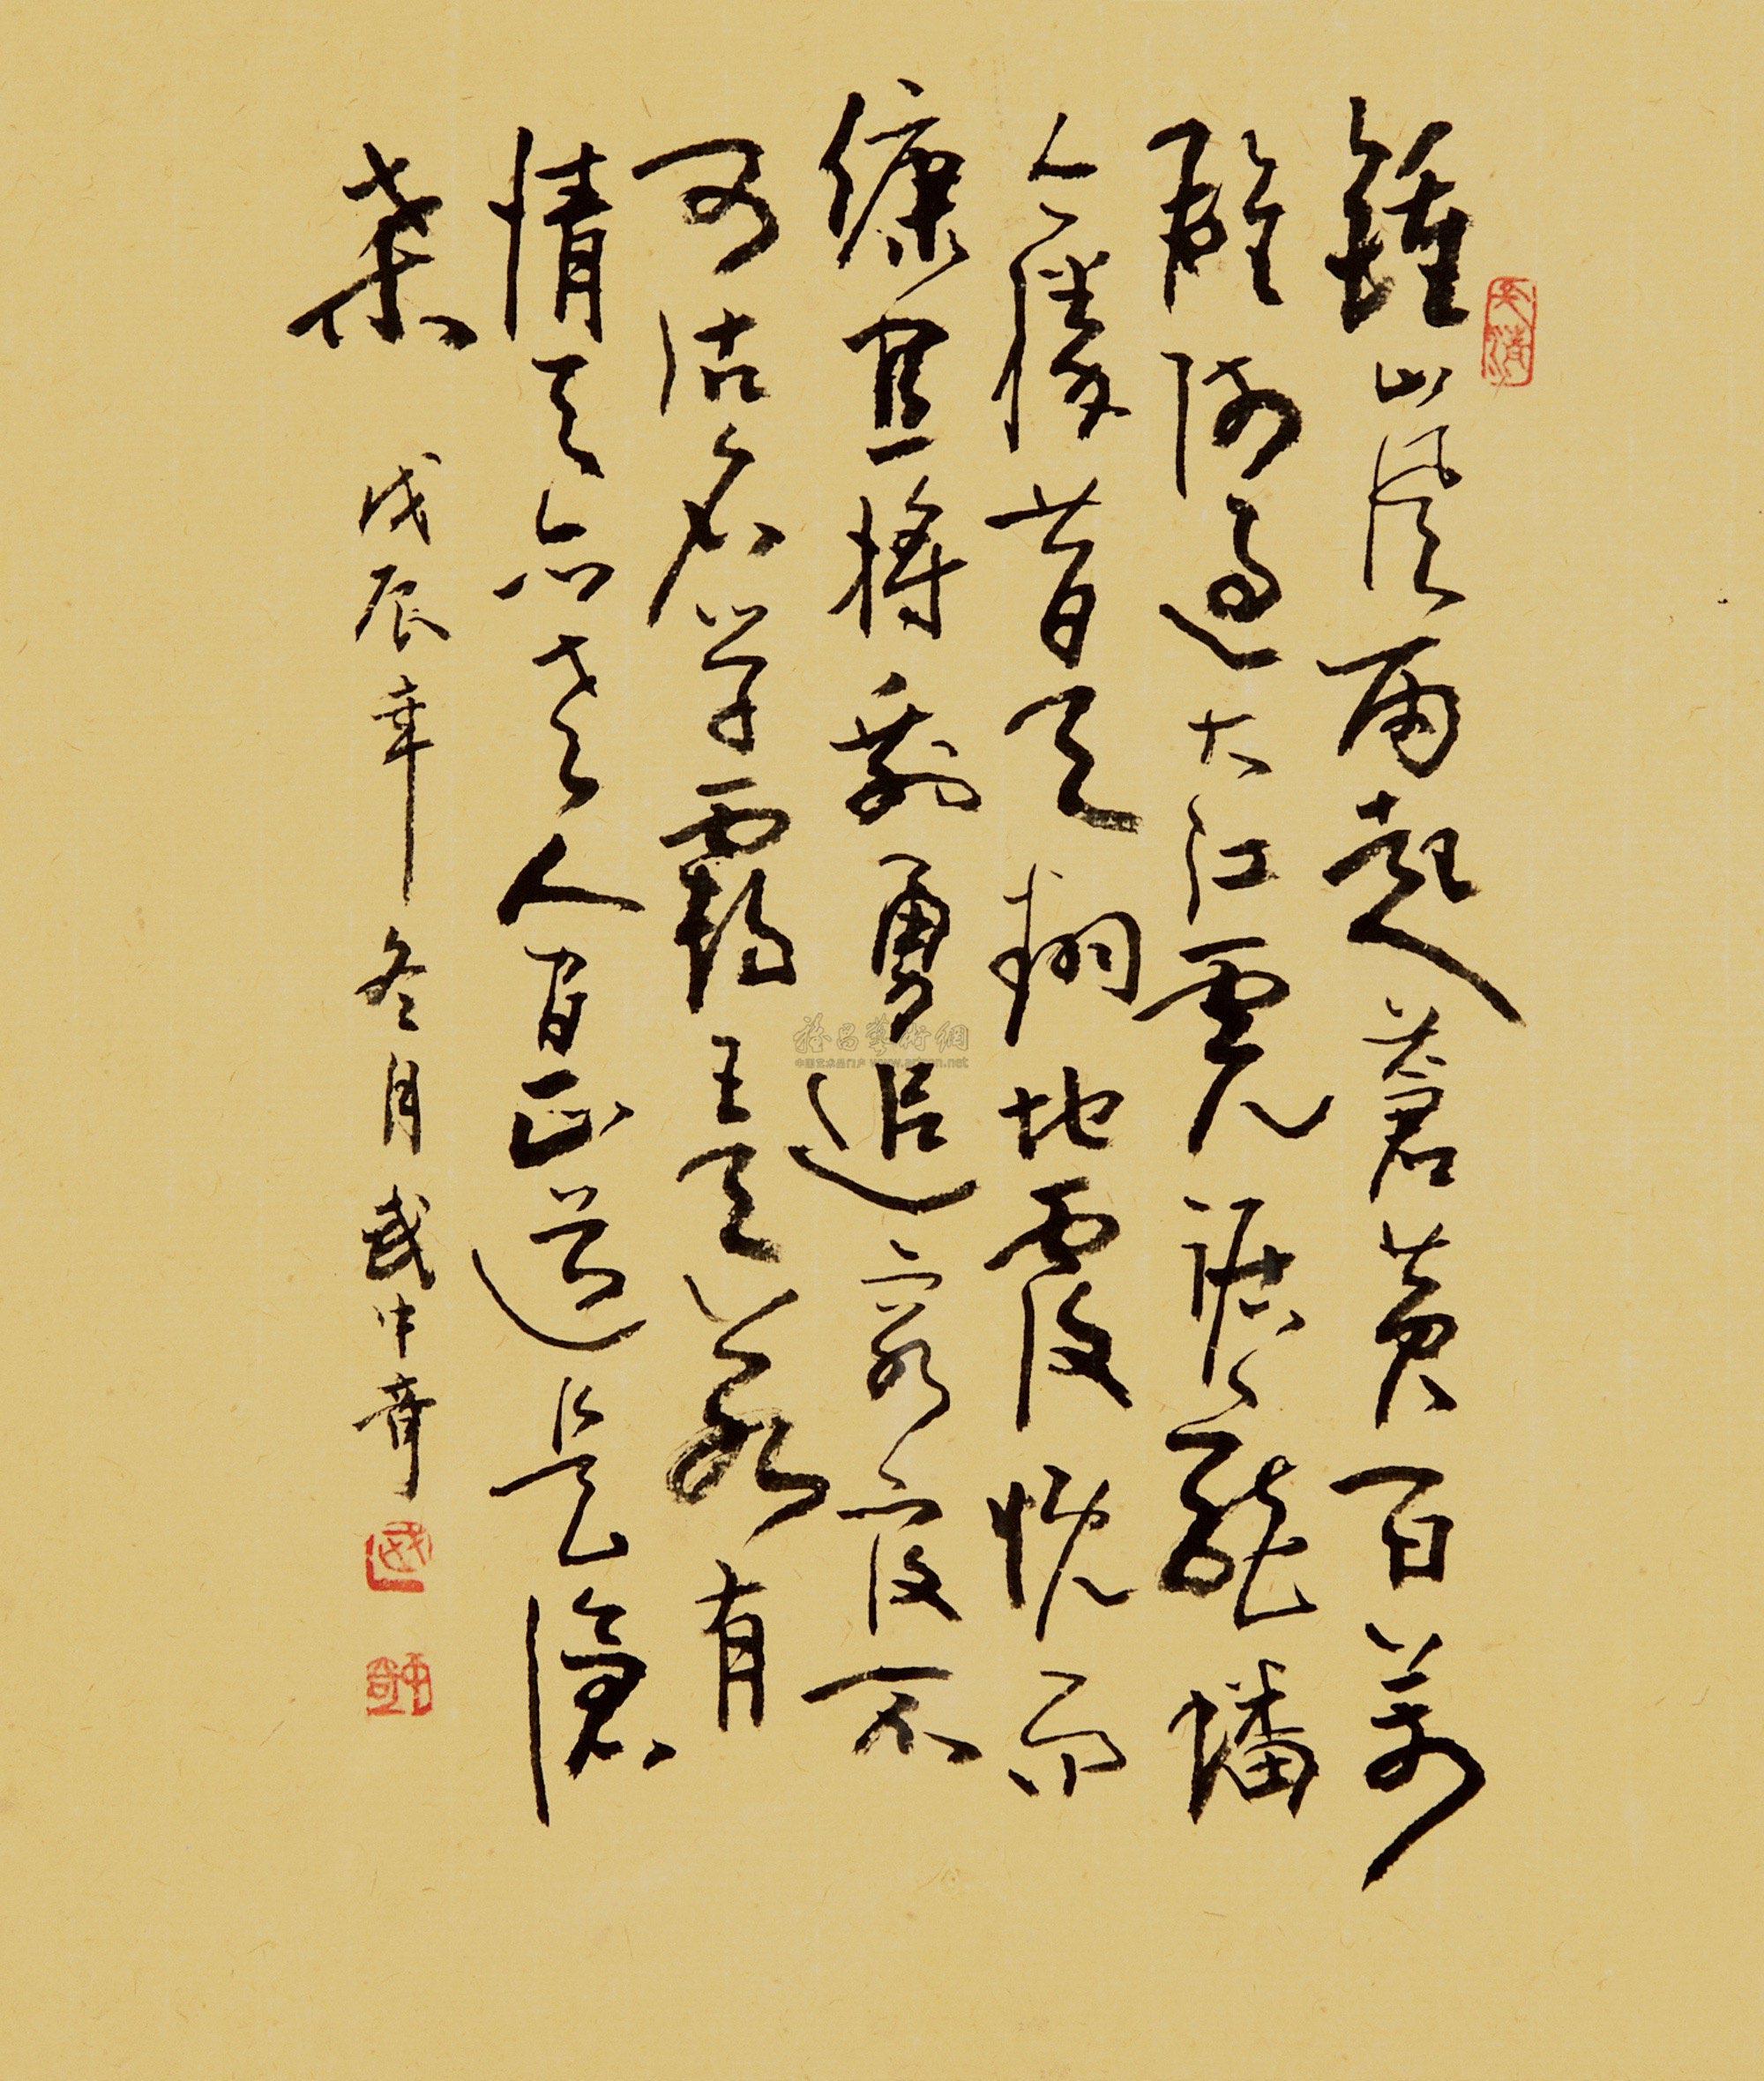 鍾山風雨起蒼黃百萬
雄師過大江虎踞龍蟠
今勝昔天翻地覆慨而
慷宜將剩勇追窮寇不
可沽名學霸王天若有
情天亦老人間正道是滄
桑 戊辰年冬月武中奇
雅昌藝術網
www.artron.net